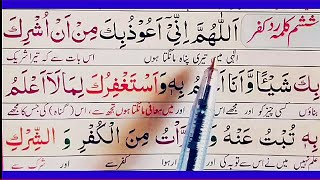 ششم کلمہ ردّ کفر
اَللّٰهُمَّ اِنِّیْ اَعُوْذُ بِكَ مِنْ اَنْ اُشْرِكَ
الٰہی میں تیری پناہ مانگتا ہوں اس بات سے کہ تیرا شریک
بِكَ شَیْئًا وَّ اَنَا اَعْلَمُ بِهٖ وَ اَسْتَغْفِرُكَ لِمَا لَا اَعْلَمُ
بناؤں کسی چیز کو اور مجھے اس اور معافی مانگتا ہوں تجھ سے، اس (گناہ) کی جس کا مجھے
بِهٖ تُبْتُ عَنْهُ وَ رَّاْتُ مِنَ الْکُفْرِ وَ الشِّرْكِ
علم نہیں میں نے اس سے توبہ کی اور ہوا کفر سے اور شرک سے